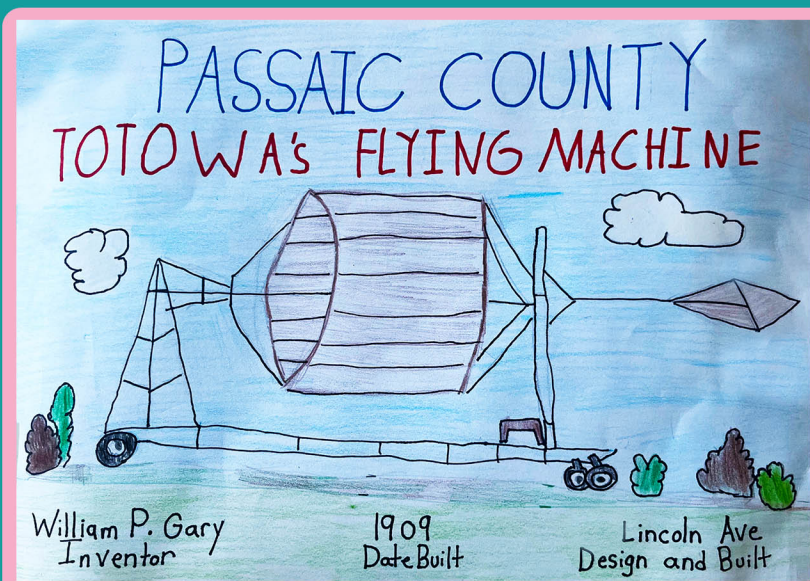 PASSAIC COUNTY
TOTOWA's FLYING MACHINE
William P. Gary
Inventor
1909
Date Built
Lincoln Ave
Design and Built